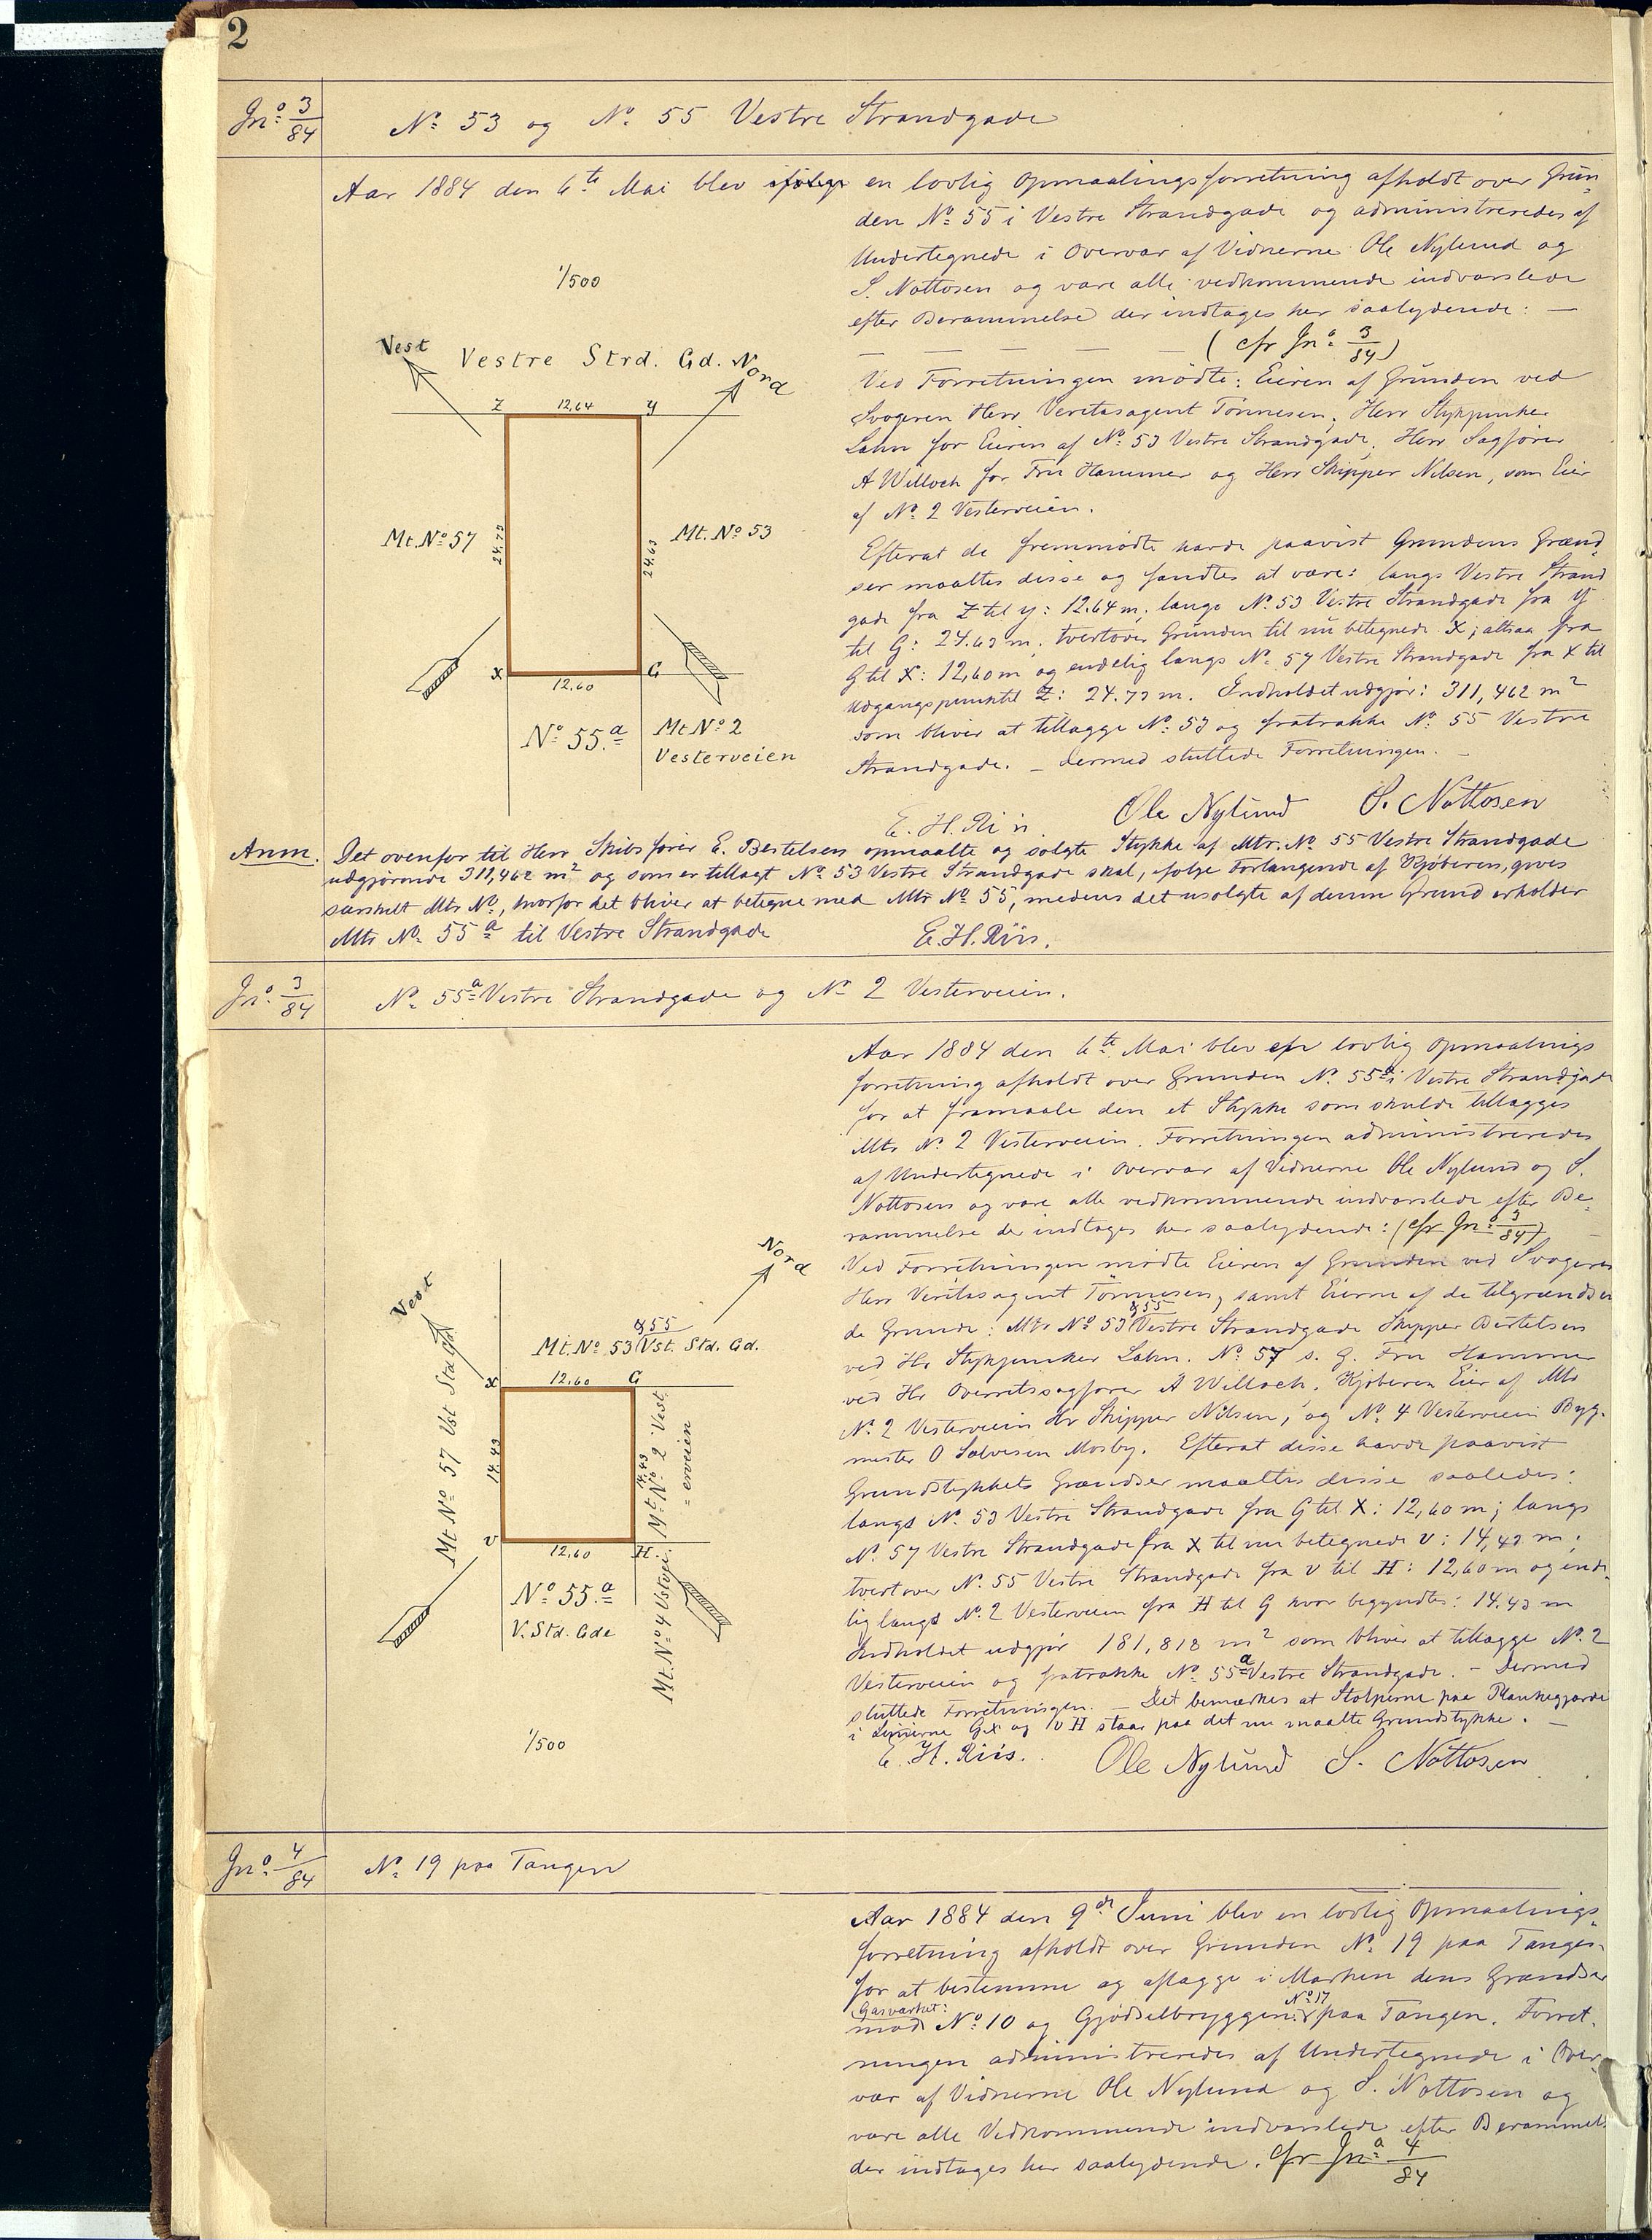 2
Jn.º 3/84
Nº 53 og Nº 55 Vestre Strandgade
Aar 1884 den 6te Mai blev en lovlig Opmaalingsforretning afholdt over Grun-
den Nº 55 i Vestre Strandgade og administreredes af
Undertegnede i Overvær af Vidnerne Ole Nylund og
S. Nottosen og vare alle vedkommende indvarslede
efter Berammelse der indtages her saalydende: —
— — — — — (cfr Jnº 3/84)
Ved Forretningen mødte: Eieren af Grunden ved
Svogeren Herr Veritasagent Tønnesen, Herr Stykjunker
Lahn for Eieren af Nº 53 Vestre Strandgade, Herr Sagfører
A Willoch for Fru Hammer og Herr Skipper Nilsen, som Eier
af Nº 2 Vesterveien.
Efterat de fremmødte havde paavist Grundens Grænd-
ser maaltes disse og fandtes at være: langs Vestre Strand
gade fra Z til y: 12.64 m, langs Nº 53 Vestre Strandgade fra y
til G: 24.63 m, tvertover Grunden til nu betegnede X; altsaa fra
G til X: 12,60 m og endelig langs Nº 57 Vestre Strandgade fra X til
Udgangspunktet Z: 24.73 m. Indholdet udgjør: 311,462 m²
som bliver at tillægge Nº 53 og fratrække Nº 55 Vestre
Strandgade. — Dermed sluttede Forretningen. —
E. H. Riis. Ole Nylund S. Nottosen
1/500
Vest
Vestre Strd. Gd.
Nord
Z 12,64 y
Mt. Nº 57
24.73
24.63
Mt. Nº 53
X 12,60 G
Nº 55.a
Mt Nº 2
Vesterveien
Anm. Det ovenfor til Herr Skibsfører E. Bertelsen opmaalte og solgte Stykke af Mtr. Nº 55 Vestre Strandgade
udgjørende 311,462 m² og som er tillagt Nº 53 Vestre Strandgade skal, ifølge Forlangende af Kjøberen, gives
særskilt Mtr Nº, hvorfor det bliver at betegne med Mtr Nº 55, medens det usolgte af denne Grund erholder
Mtr Nº 55a til Vestre Strandgade E. H. Riis.
Jnº 3/84
Nº 55a Vestre Strandgade og Nº 2 Vesterveien.
Aar 1884 den 6te Mai blev en lovlig Opmaalings
forretning afholdt over Grunden Nº 55a i Vestre Strandgade
for at framaale den et Stykke som skulde tillægges
Mtr Nº 2 Vesterveien. Forretningen administreredes
af Undertegnede i Overvær af Vidnerne Ole Nylund og S.
Nottosen og vare alle vedkommende indvarslede efter Be-
rammelse der indtages her saalydende: (cfr Jnº 3/84)
Ved Forretningen mødte Eieren af Grunden ved Svogeren
Herr Veritasagent Tønnesen, samt Eierne af de tilgrændsen
de Grunde: Mtr Nº 53 & 55 Vestre Strandgade Skipper Bertelsen
ved Hr Stykjunker Lahn. Nº 57 s. G. Fru Hammer
ved Hr Overretssagfører A Willoch, Kjøberen Eier af Mtr
Nº 2 Vesterveien Hr Skipper Nilsen, og Nº 4 Vesterveien Byg-
mester O Salvesen Mosby. Efterat disse havde paavist
Grundstykkets Grændser maaltes disse saaledes:
langs Nº 53 Vestre Strandgade fra G til X: 12,60 m; langs
Nº 57 Vestre Strandgade fra X til nu betegnede v: 14,43 m;
tvertover Nº 55 Vestre Strandgade fra v til H: 12,60 m og ende-
lig langs Nº 2 Vesterveien fra H til G hvor begyndtes: 14.43 m
Indholdet udgjør 181,818 m² som bliver at tillægge Nº 2
Vesterveien og fratrække Nº 55a Vestre Strandgade. — Dermed
sluttede Forretningen. — Det bemærkes at Stolperne paa Plankegjærde
i Linierne G X og v H staar paa det nu maalte Grundstykke. —
E. H. Riis. Ole Nylund S. Nottosen
Nord
Vest
& 55
Mt. Nº 53 Vst. Std. Gd.
X 12,60 G
Mt Nº 57 Vst Std Gd
14.43
14.43
Mt. Nº 2 Vest
=erveien
v 12,60 H.
Nº 55.a
V. Std. Gde
Mt. Nº 4 Vstvei
1/500
Jnº 4/84
Nº 19 paa Tangen
Aar 1884 den 9de Juni blev en lovlig Opmaalings-
forretning afholdt over Grunden Nº 19 paa Tangen
for at bestemme og aflægge i Marken dens Grændser
mod Gasværket: Nº 10 og Gjødselbryggen: Nº 17 paa Tangen. Forret-
ningen administreredes af Undertegnede i Over-
vær af Vidnerne Ole Nylund og S. Nottosen og
vare alle Vedkommende indvarslede efter Berammels
der indtages her saalydende. cfr Jnº 4/84